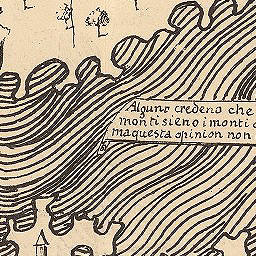 Alguno credeno che
monti sieno i monti
ma questa opinion non